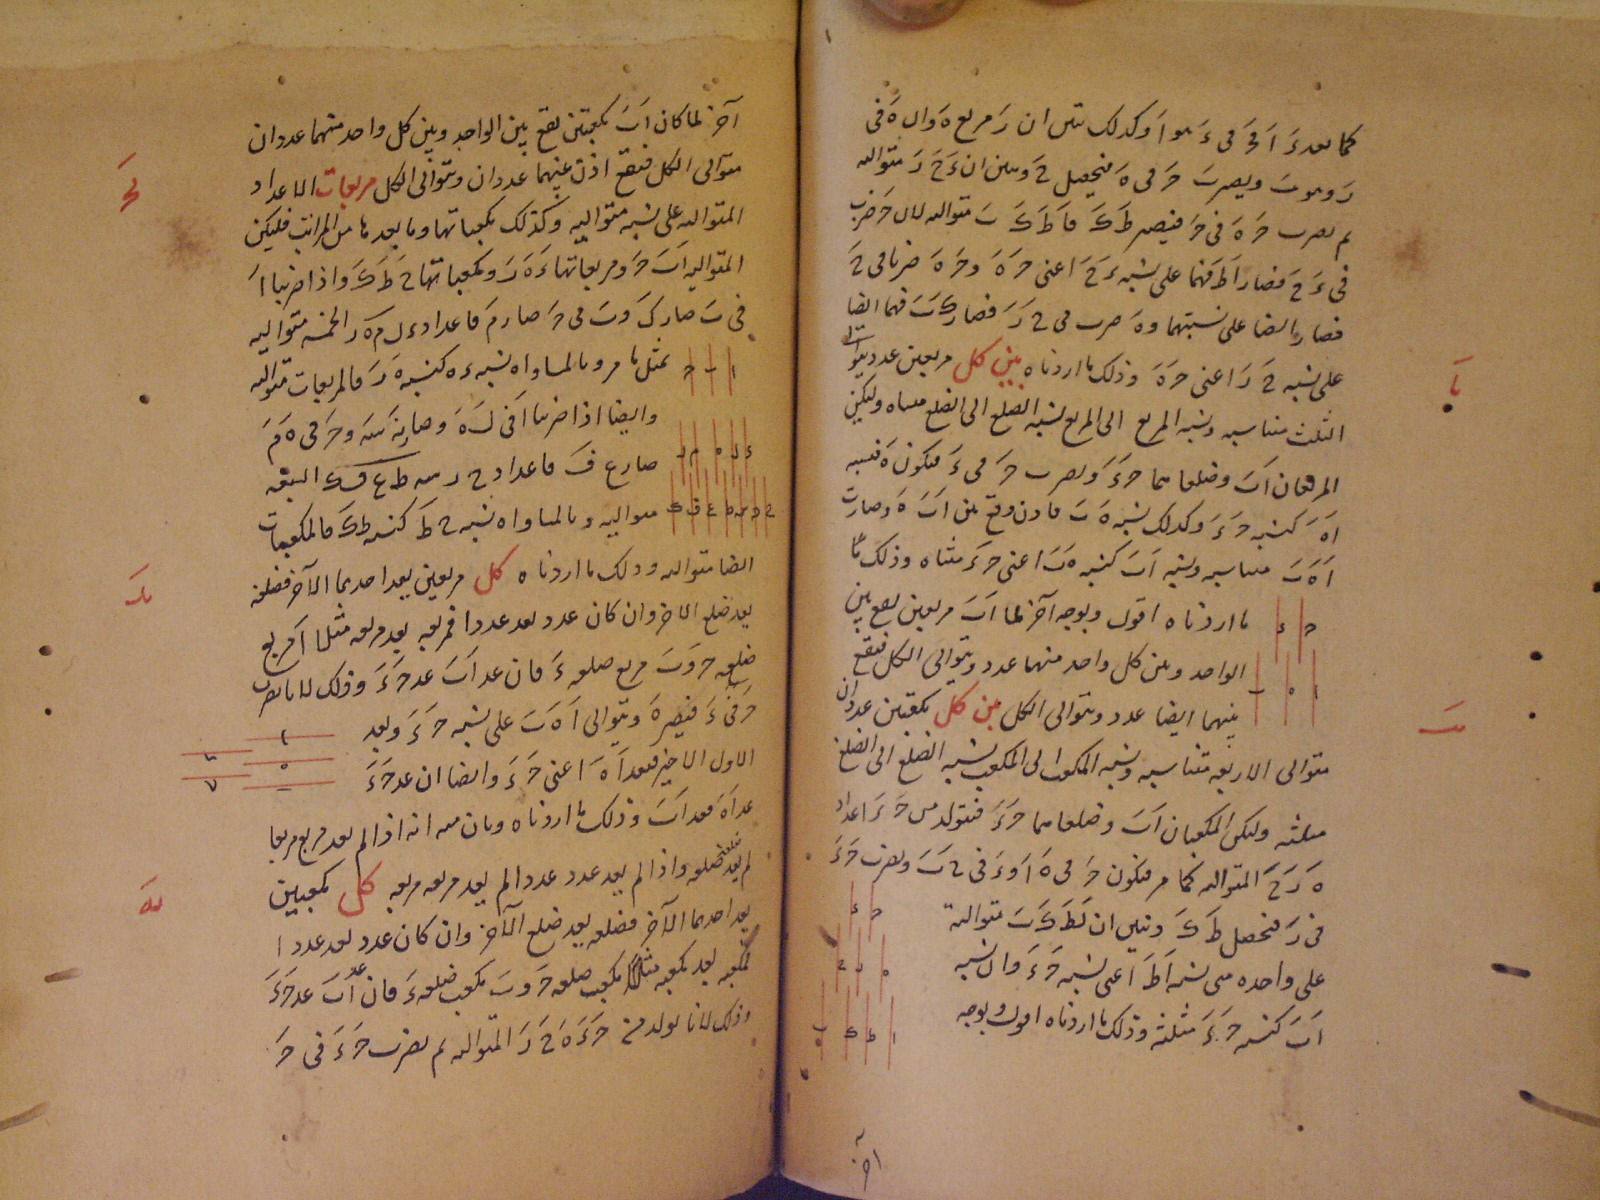 كما يعد ءَ اَ حَ فى ءَ هو اَ وكذلك تبين ان رَ مربع هَ وان هَ فى
رَ وهو بَ ويضرب حَ فى هَ فيحصل حَ وتبين ان ءَ حَ رَ متواليه
ثم يضرب حَ هَ فى حَ فيصير طَ كَ فا طَ كَ بَ متواليه لان حَ ضرب
فى ءَ حَ فصار اَ طَ فهما على نسبه ءَ حَ اعنى حَ هَ و حَ هَ ضربا فى حَ
فصار ايضا على نسبتهما و هَ ضرب فى حَ رَ فصار كَ بَ فهما ايضا
على نسبه حَ رَ اعنى حَ هَ وذلك ما اردناه بين كل مربعين عدد يتوالى
الثلث متناسبه ونسبه المربع الى المربع نسبه الضلع الى الضلع مثناه وليكن
المربعان اَ بَ وضلعاهما حَ ءَ ويضرب حَ فى ءَ فيكون هَ فنسبه
اَ هَ كنسبه حَ ءَ وكذلك نسبه هَ بَ فاذن وقع بين اَ بَ هَ وصارت
اَ هَ بَ متناسبه ونسبه اَ بَ كنسبه هَ بَ اعنى حَ ءَ مثناه وذلك ما
ما اردناه اقول وبوجه آخر لما اَ بَ مربعين يقع بين
الواحد وبين كل واحد منهما عدد ويتوالى الكل فيقع
بينهما ايضا عدد ويتوالى الكل بين كل مكعبين عددان
متوالى الاربعه متناسبه ونسبه المكعب الى المكعب نسبه الضلع الى الضلع
مثلثه وليكن المكعبان اَ بَ وضلعاهما حَ ءَ فيتولد من حَ ءَ اعداد
هَ رَ حَ المتواليه كما مر فيكون حَ فى هَ اَ و ءَ فى حَ بَ ويضرب حَ ءَ
فى رَ فيحصل طَ كَ وتبين ان اَ طَ كَ بَ متواليه
على واحده هى نسبه اَ طَ اعنى نسبه حَ ءَ وان نسبه
اَ بَ كنسبه حَ ءَ مثلثه وذلك ما اردناه اقول وبوجه
آخر
آخر لما كان اَ بَ مكعبين يقع بين الواحد وبين كل واحد منهما عددان
متوالى الكل فيقع اذن بينهما عددان ويتوالى الكل مربعات الاعداد
المتواليه على نسبه متواليه وكذلك مكعباتها وما بعدها من المراتب فليكن
المتواليه اَ بَ حَ ومربعاتها ءَ هَ رَ ومكعباتها حَ طَ كَ واذا ضربنا اَ
فى بَ صار لَ و بَ فى حَ صار مَ فاعداد ءَ لَ هَ مَ رَ الخمسه متواليه
بمثل ما مر وبالمساواه نسبه ءَ هَ كنسبه هَ رَ فالمربعات متواليه
وايضا اذا ضربنا اَ فى لَ هَ وصار نَ سَ و حَ فى هَ مَ
صار عَ فَ فاعداد حَ نَ سَ طَ عَ فَ كَ السبعه
متواليه وبالمساواه نسبه حَ طَ كنسبه طَ كَ فالمكعبات
ايضا متواليه وذلك ما اردناه كل مربعين يعد احدهما الآخر فضلعه
يعد ضلع الاخر وان كان عدد يعد عددا فمربعه يعد مربعه مثلا اَ مربع
ضلعه حَ و بَ مربع ضلعه ءَ فان عد اَ بَ عد حَ ءَ وذلك لانا نضرب
حَ فى ءَ فيصير هَ ويتوالى اَ هَ بَ على نسبه حَ ءَ ويعد
الاول الاخير فيعد اَ هَ اعنى حَ ءَ وايضا ان عد حَ ءَ
عد اَ هَ فعد اَ بَ وذلك ما اردناه وبان منه انه اذا لم يعد مربع مربعا
لم يعد ضلعه ضلعه واذا لم يعد عدد عددا لم يعد مربعه مربعه كل مكعبين
يعد احدهما الآخر فضلعه يعد ضلع الآخر وان كان عدد يعد عددا
فمكعبه يعد مكعبه مثلا اَ مكعب ضلعه حَ و بَ مكعب ضلعه ءَ فان عد اَ بَ عد حَ ءَ
وذلك لانا نولد من حَ ءَ هَ حَ رَ المتواليه ثم نضرب حَ ءَ فى حَ